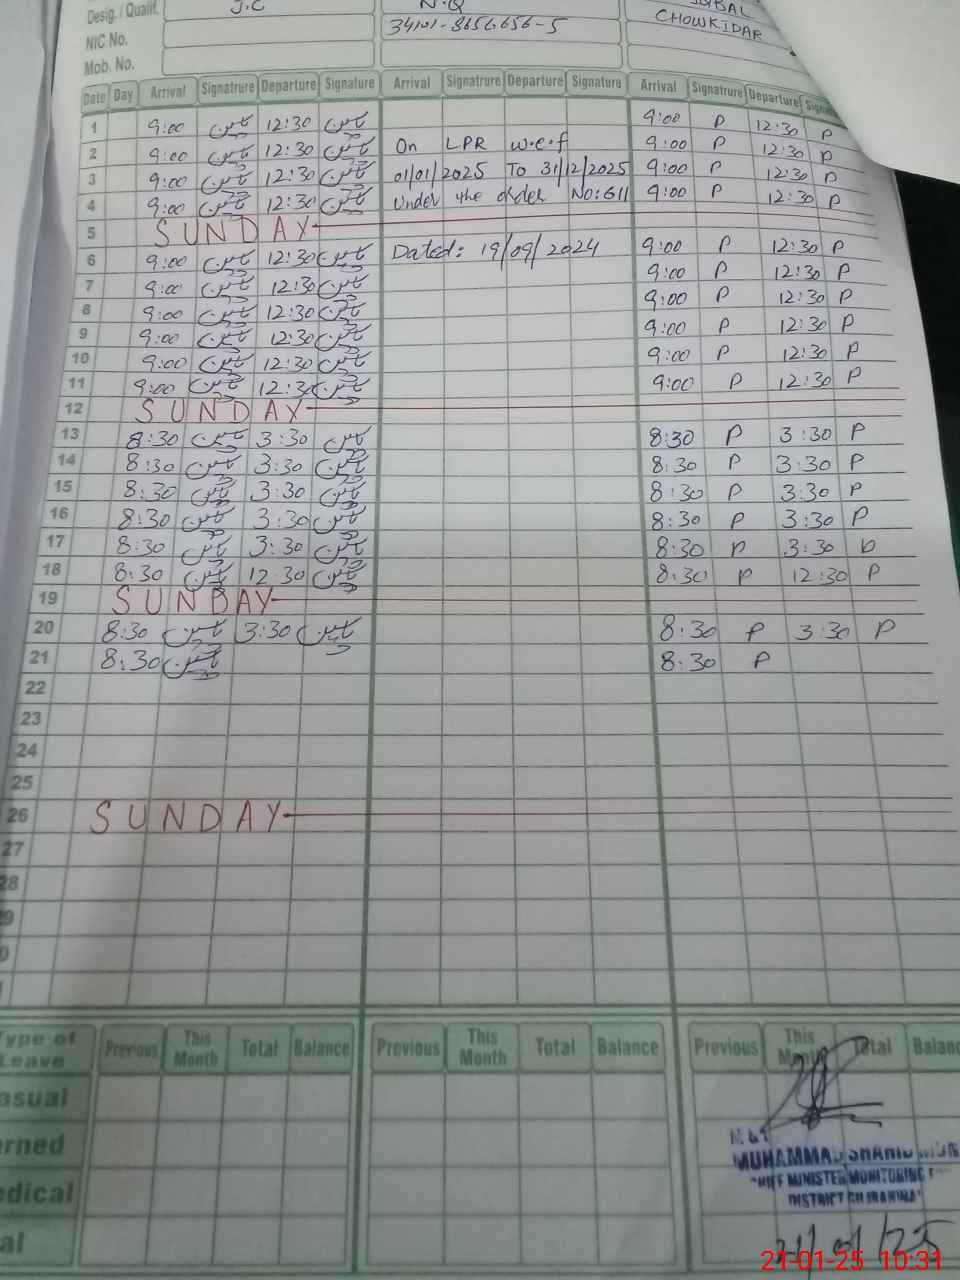 Desig. / Qualif. J.C N.Q
NIC No. 34101-8656656-5 CHOWKIDAR
Mob. No.
Date Day Arrival Signatrure Departure Signature Arrival Signatrure Departure Signature Arrival Signatrure Departure
1 9:00 یاسین 12:30 یاسین 9:00 P 12:30 P
2 9:00 یاسین 12:30 یاسین On LPR w.e.f 9:00 P 12:30 P
3 9:00 یاسین 12:30 یاسین 01/01/2025 To 31/12/2025 9:00 P 12:30 P
4 9:00 یاسین 12:30 یاسین Under the order No:611 9:00 P 12:30 P
5 SUNDAY
6 9:00 یاسین 12:30 یاسین Dated: 19/09/2024 9:00 P 12:30 P
7 9:00 یاسین 12:30 یاسین 9:00 P 12:30 P
8 9:00 یاسین 12:30 یاسین 9:00 P 12:30 P
9 9:00 یاسین 12:30 یاسین 9:00 P 12:30 P
10 9:00 یاسین 12:30 یاسین 9:00 P 12:30 P
11 9:00 یاسین 12:30 یاسین 9:00 P 12:30 P
12 SUNDAY
13 8:30 یاسین 3:30 یاسین 8:30 P 3:30 P
14 8:30 یاسین 3:30 یاسین 8:30 P 3:30 P
15 8:30 یاسین 3:30 یاسین 8:30 P 3:30 P
16 8:30 یاسین 3:30 یاسین 8:30 P 3:30 P
17 8:30 یاسین 3:30 یاسین 8:30 P 3:30 P
18 8:30 یاسین 12:30 یاسین 8:30 P 12:30 P
19 SUNDAY
20 8:30 یاسین 3:30 یاسین 8:30 P 3:30 P
21 8:30 یاسین 8:30 P
22
23
24
25
26 SUNDAY
27
28
Type of Leave Previous This Month Total Balance Previous This Month Total Balance Previous This Month Total Balance
Casual
Earned
Medical
MUHAMMAD SHAHID
CHIEF MINISTER MONITORING
DISTRICT
21/01/25
21-01-25 10:31